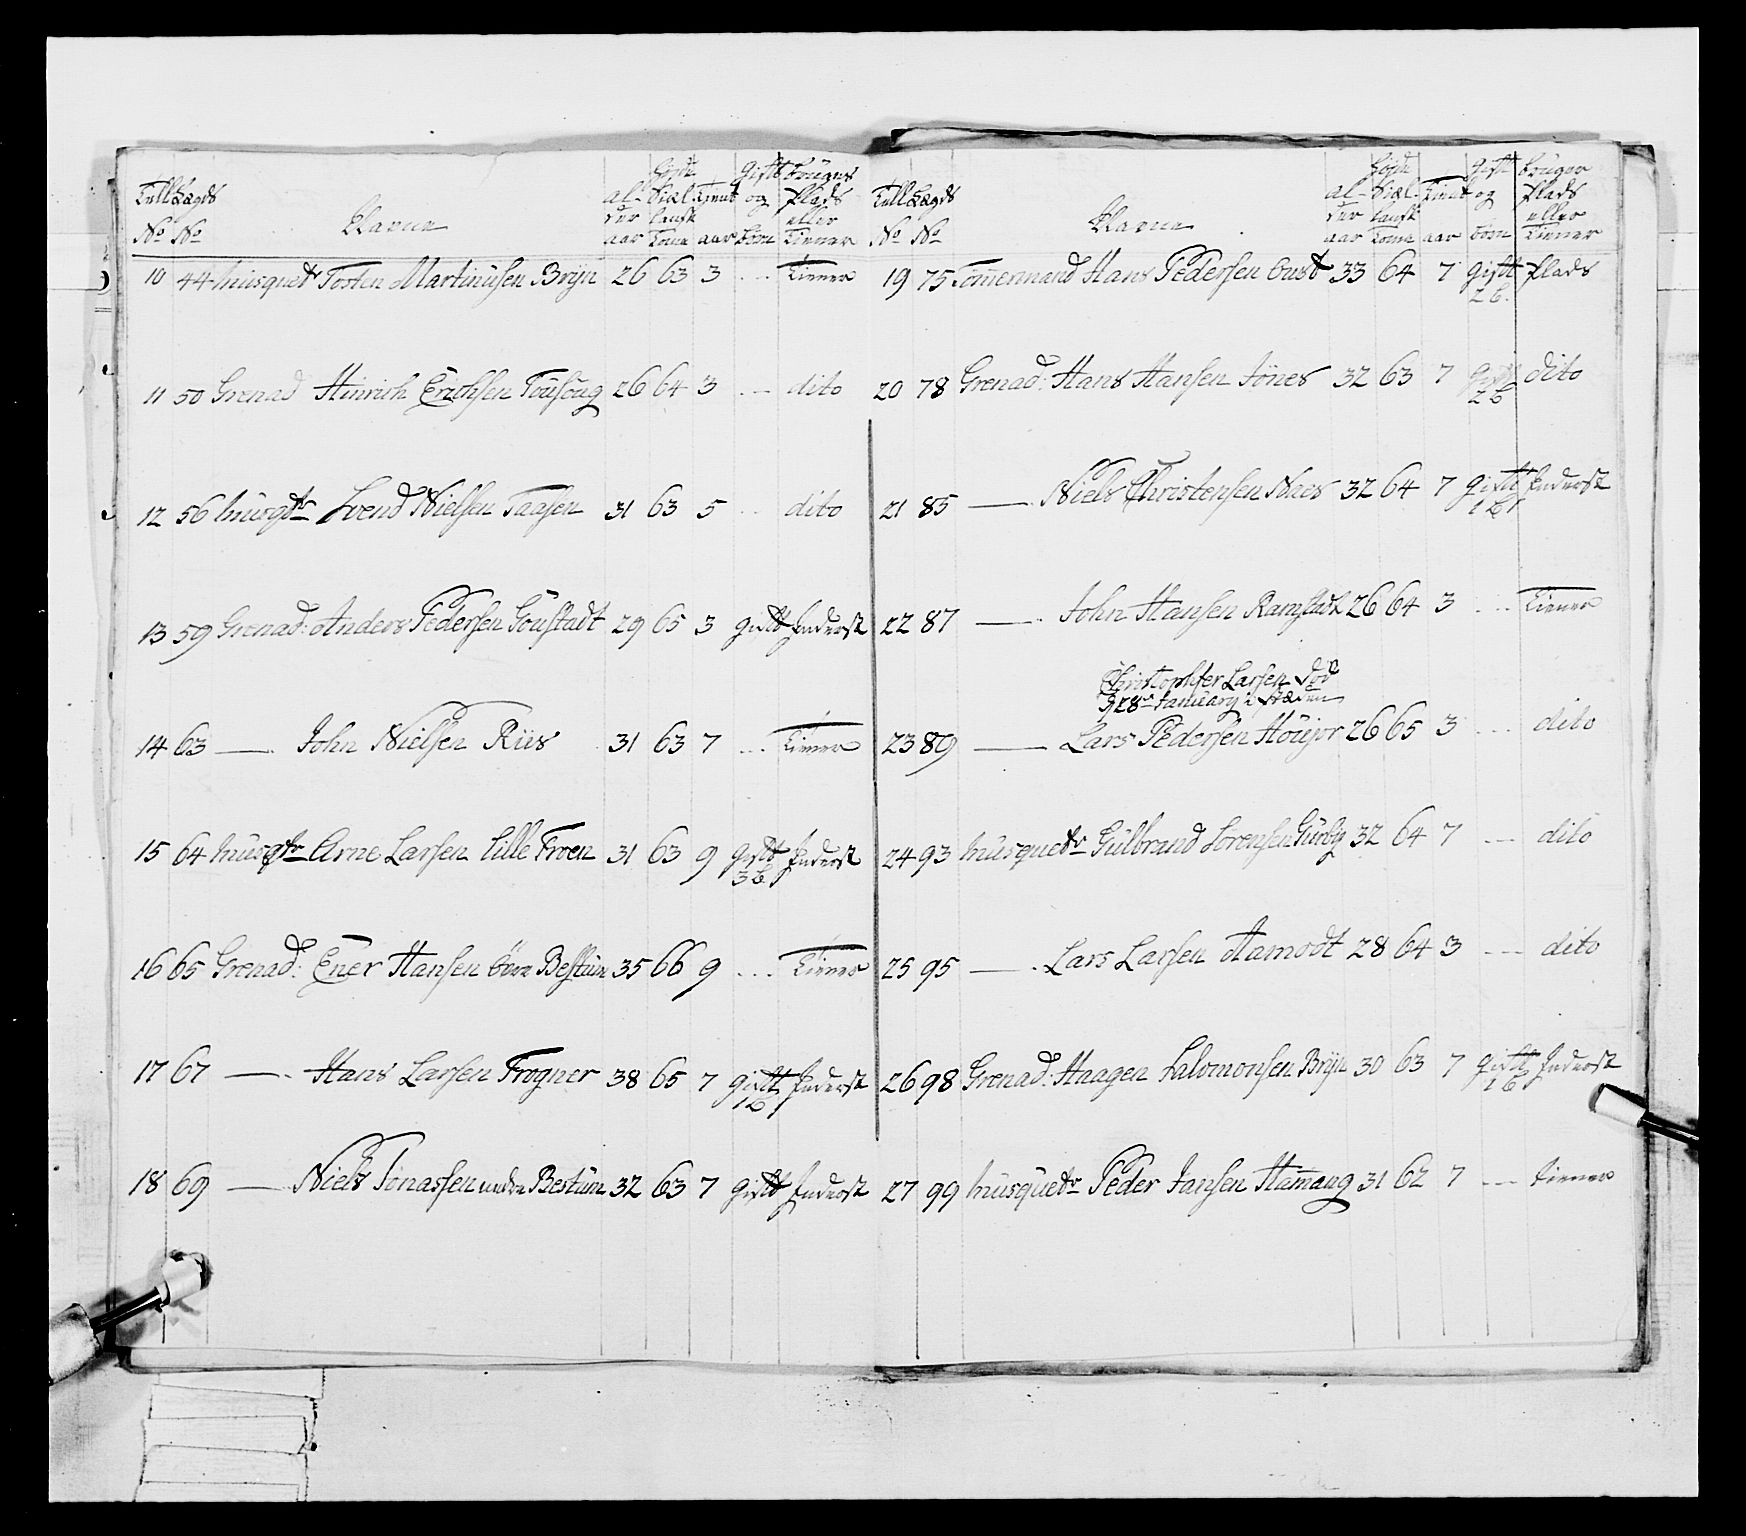 Tull Lægds No No Navne al- der aar Höyde Siæl- lansk Tome Tient aar Gift og börn bruger Plads eller Tiener
10 44 Musquetr Tosten Martinüsen Brÿn 26 63 3 ... Tiener
11 50 Grenad Hinrich Erichsen 26 64 3 ... dito
12 56 Musqtr Svend Nielsen Taasen 31 63 5 ... dito
13 59 Grenad: Anders Pedersen Goustadt 29 65 3 gift Inderst
14 63 — John Nielsen Riis 31 63 7 ... Tiener
15 64 Musqtr Arne Larsen Lille Froen 31 63 9 gift 3 b Inderst
16 65 Grenad: Ener Hansen övre Bestum 35 66 9 ... Tiener
17 67 — Hans Larsen Frogner 38 65 7 gift 1 b Inderst
18 69 — Niels Jonassen nedre Bestüm 32 63 7 gift Inderst
Tull Lægds No No Navne al- der aar Höyde Siæl- lansk Tome Tient aar gift og börn bruger Plads eller Tiener
19 75 Tömermand Hans Pedersen 33 64 7 gift 2 b. Plads
20 78 Grenad: Hans Hansen Jönes 32 63 7 gift 2 b dito
21 85 — Niels Christensen Naes 32 64 7 gift 1 b Inderst
22 87 — John Hansen Ramstadt 26 64 3 ... Tiener
Christopher Larsen död
d 28de January i Stæden
23 89 — Lars Pedersen 26 65 3 ... dito
24 93 Musquetr Gülbrand Sorensen 32 64 7 ... dito
25 95 — Lars Larsen Aamodt 28 64 3 ... dito
26 98 Grenad: Haagen Salomonsen Brÿn 30 63 7 gift 1 b Inderst
27 99 Musquetr Peder Jansen Hamang 31 62 7 ... tiener